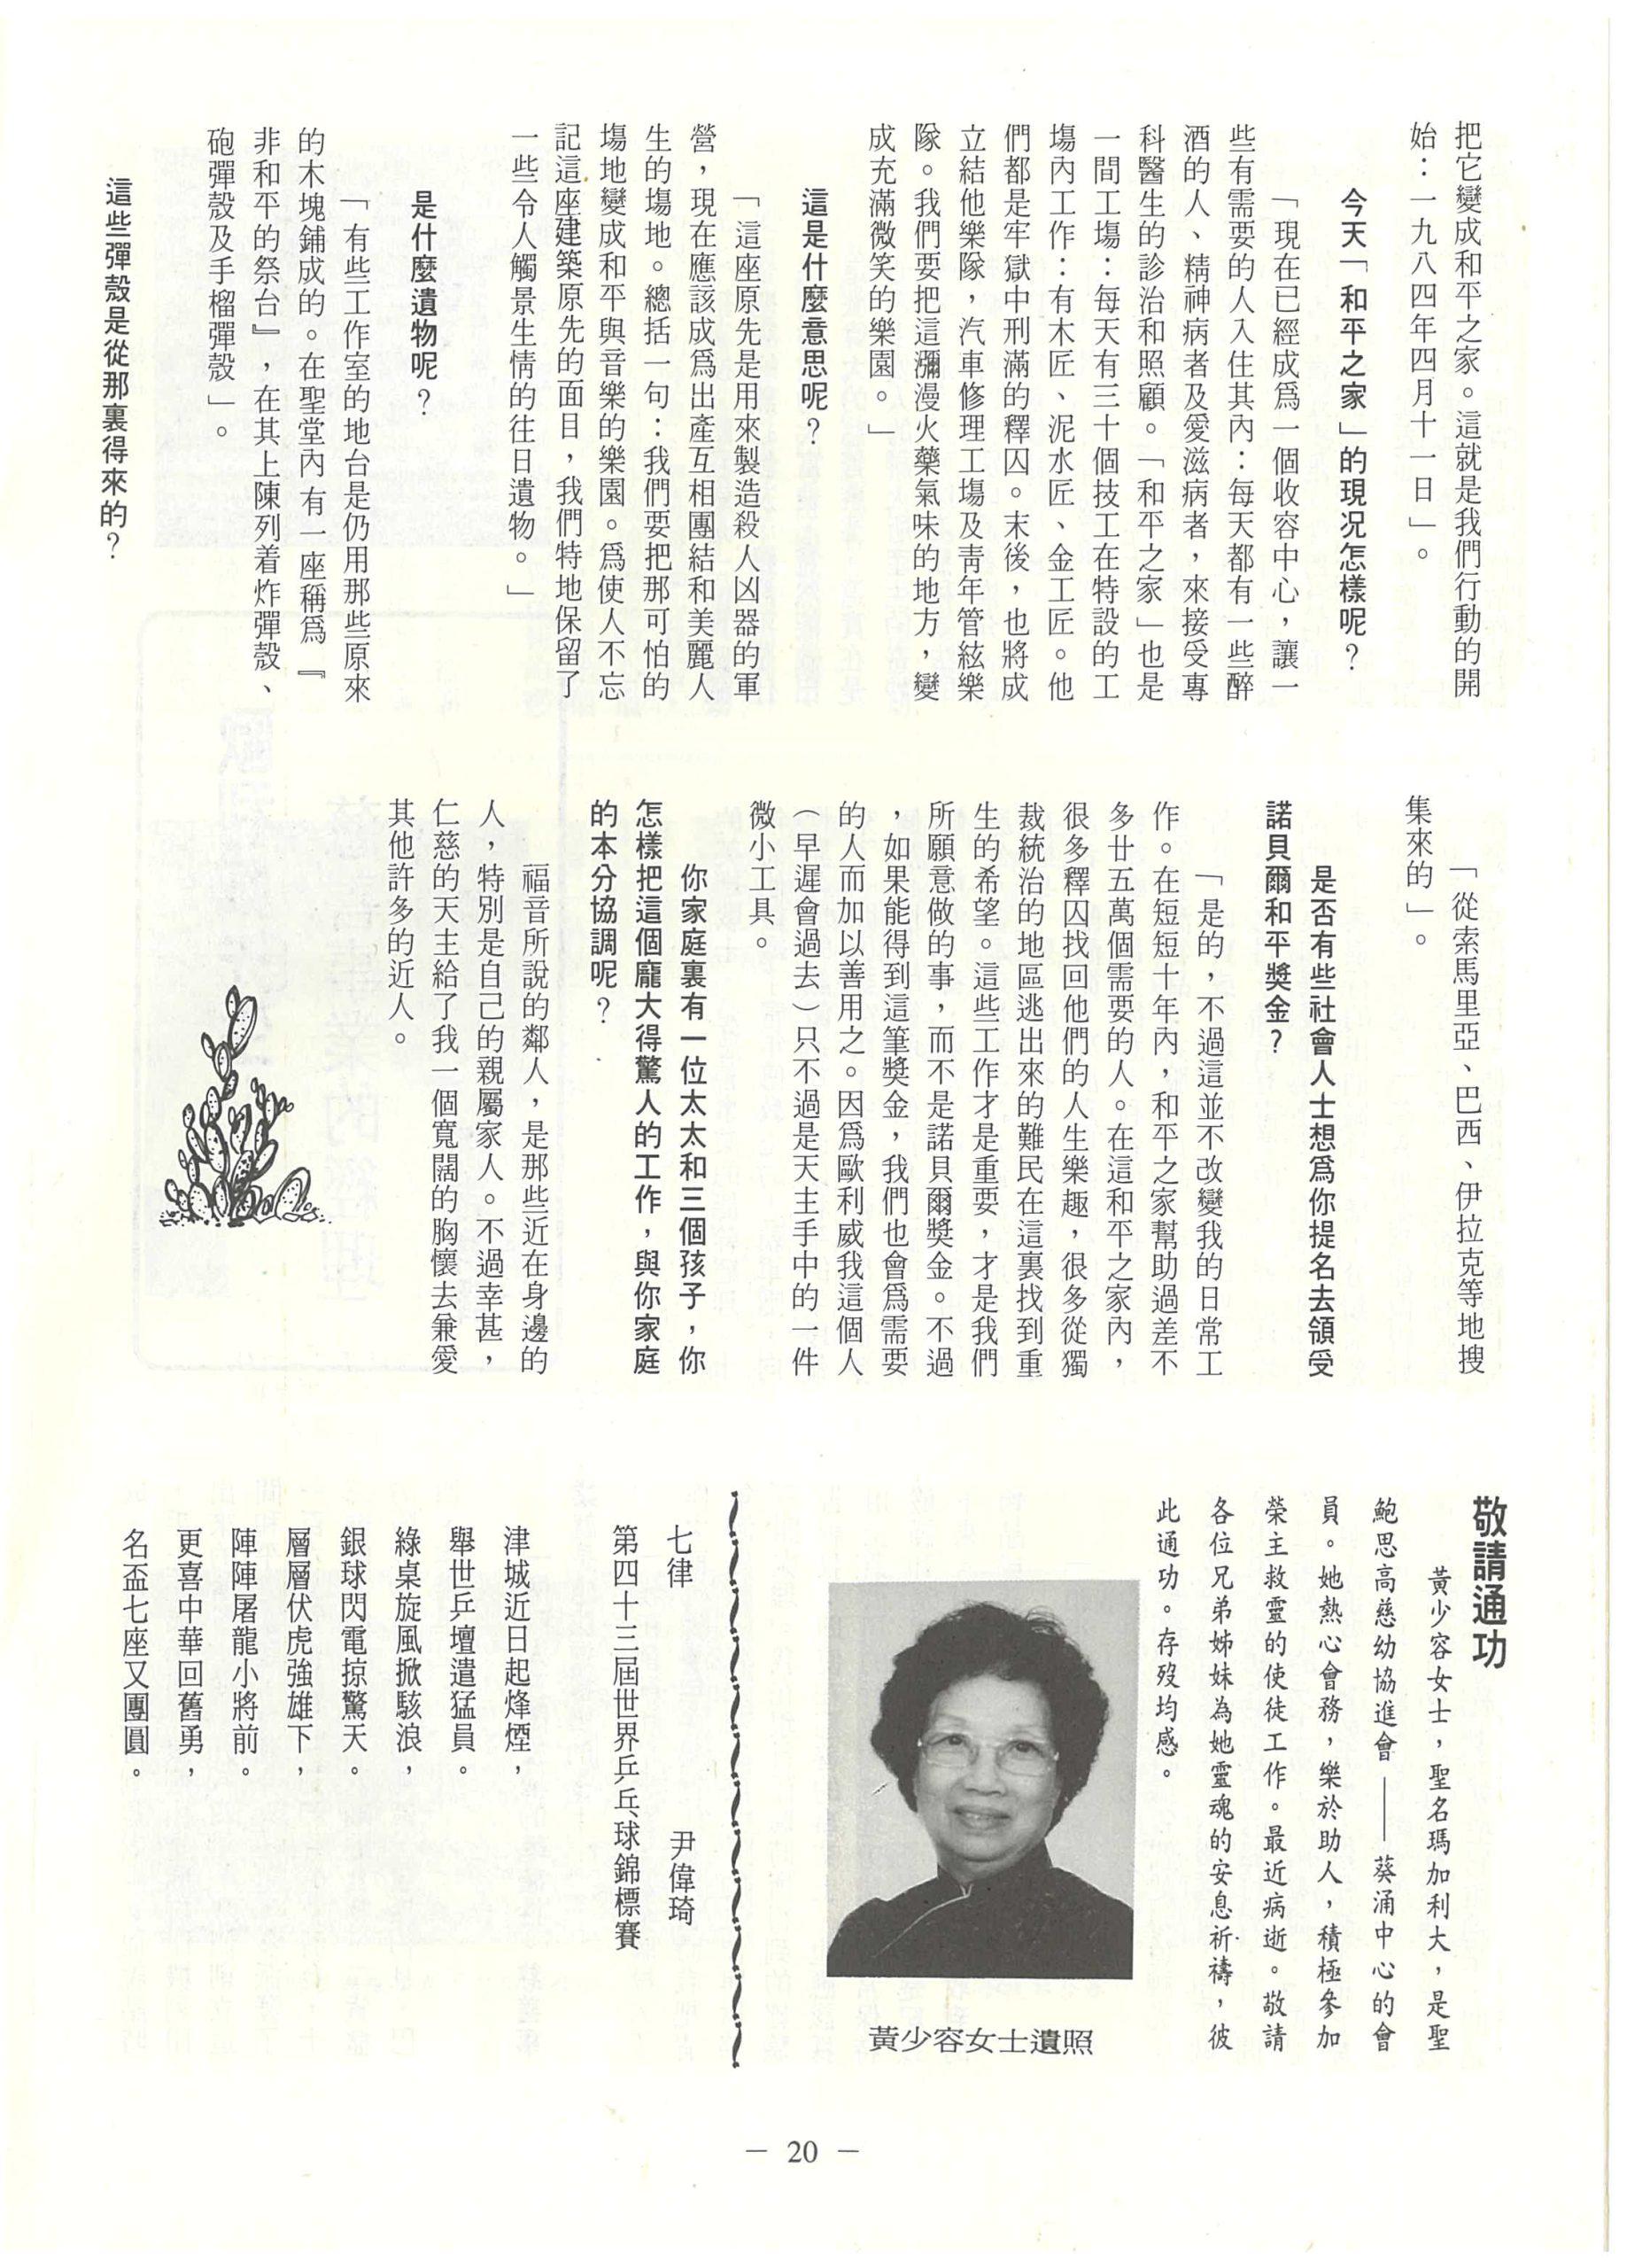 把它變成和平之家。這就是我們行動的開
始：一九八四年四月十一日」。
今天「和平之家」的現况怎樣呢？
「現在已經成爲一個收容中心，讓一
些有需要的人入住其內：每天都有一些醉
酒的人、精神病者及愛滋病者，來接受專
科醫生的診治和照顧。「和平之家」也是
一間工塲：每天有三十個技工在特設的工
塲內工作：有木匠、泥水匠、金工匠。他
們都是牢獄中刑滿的釋囚。末後，也將成
立結他樂隊，汽車修理工塲及靑年管絃樂
隊。我們要把這瀰漫火藥氣味的地方，變
成充滿微笑的樂園。」
這是什麼意思呢？
「這座原先是用來製造殺人凶器的軍
營，現在應該成爲出產互相團結和美麗人
生的塲地。總括一句：我們要把那可怕的
塲地變成和平與音樂的樂園。爲使人不忘
記這座建築原先的面目，我們特地保留了
一些令人觸景生情的往日遺物。」
是什麼遺物呢？
「有些工作室的地台是仍用那些原來
的木塊鋪成的。在聖堂內有一座稱爲『
非和平的祭台』，在其上陳列着炸彈殼、
砲彈殼及手榴彈殼」。
這些彈殼是從那裏得來的？
「從索馬里亞、巴西、伊拉克等地搜
集來的」。
是否有些社會人士想爲你提名去領受
諾貝爾和平獎金？
「是的，不過這並不改變我的日常工
作。在短短十年內，和平之家幫助過差不
多廿五萬個需要的人。在這和平之家內，
很多釋囚找回他們的人生樂趣，很多從獨
裁統治的地區逃出來的難民在這裏找到重
生的希望。這些工作才是重要，才是我們
所願意做的事，而不是諾貝爾獎金。不過
，如果能得到這筆獎金，我們也會爲需要
的人而加以善用之。因爲歐利威我這個人
（早遲會過去）只不過是天主手中的一件
微小工具。
你家庭裏有一位太太和三個孩子，你
怎樣把這個龐大得驚人的工作，與你家庭
的本分協調呢？
福音所說的鄰人，是那些近在身邊的
人，特別是自己的親屬家人。不過幸甚，
仁慈的天主給了我一個寬闊的胸懷去兼愛
其他許多的近人。
敬請通功
黃少容女士，聖名瑪加利大，是聖
鮑思高慈幼協進會——葵涌中心的會
員。她熱心會務，樂於助人，積極參加
榮主救靈的使徒工作。最近病逝。敬請
各位兄弟姊妹為她靈魂的安息祈禱，彼
此通功。存歿均感。
黃少容女士遺照
七律 尹偉琦
第四十三屆世界乒乓球錦標賽
津城近日起烽煙，
舉世乒壇遣猛員。
綠桌旋風掀駭浪，
銀球閃電掠驚天。
層層伏虎強雄下，
陣陣屠龍小將前。
更喜中華回舊勇，
名盃七座又團圓。
— 20 —